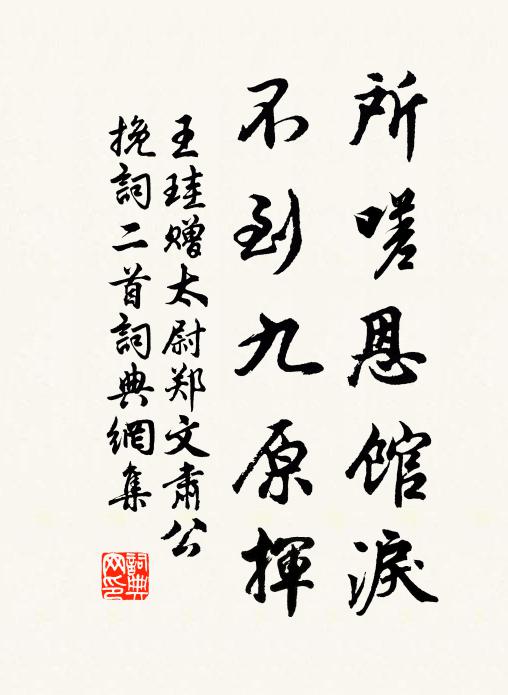 所嗟恩館淚
不到九原揮
王珪赠太尉郑文肅公
挽詞二首詞典網集
詞典
网印